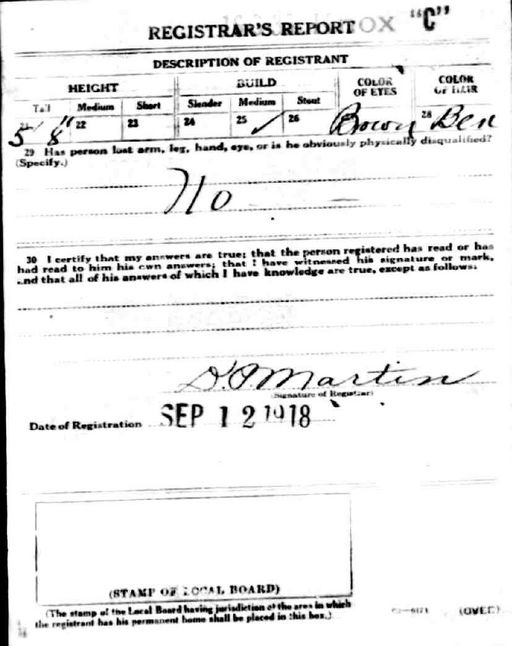 REGISTRAR'S REPORT "C"
DESCRIPTION OF REGISTRANT
HEIGHT BUILD COLOR OF EYES COLOR OF HAIR
Tall Medium Short Slender Medium Stout
21 22 23 24 25 26 28
5' 8" ✓ Brown
29 Has person lost arm, leg, hand, eye, or is he obviously physically disqualified?
(Specify.)
No
30 I certify that my answers are true; that the person registered has read or has
had read to him his own answers; that I have witnessed his signature or mark,
and that all of his answers of which I have knowledge are true, except as follows:
Martin
(Signature of Registrar)
Date of Registration SEP 12 1918
(STAMP OF LOCAL BOARD)
(The stamp of the Local Board having jurisdiction of the area in which
the registrant has his permanent home shall be placed in this box.)
(OVER)